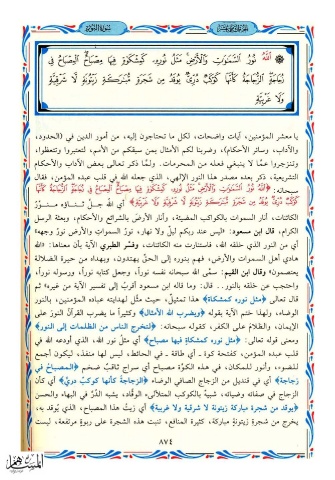 الجزء الثامن عشر
سورة النور
﴿ ۞ اللَّهُ نُورُ السَّمَاوَاتِ وَالْأَرْضِ مَثَلُ نُورِهِ كَمِشْكَاةٍ فِيهَا مِصْبَاحٌ الْمِصْبَاحُ فِي
زُجَاجَةٍ الزُّجَاجَةُ كَأَنَّهَا كَوْكَبٌ دُرِّيٌّ يُوقَدُ مِن شَجَرَةٍ مُّبَارَكَةٍ زَيْتُونَةٍ لَّا شَرْقِيَّةٍ
وَلَا غَرْبِيَّةٍ
يا معشر المؤمنين، آيات واضحات، لكل ما تحتاجون إليه، من أمور الدين في (الحدود،
والآداب، وسائر الأحكام)، وضربنا لكم الأمثال بمن سبقكم من الأمم، لتعتبروا وتتعظوا،
وتنزجروا عمَّا لا ينبغي فعله من المحرمات. ولمَّا ذكر تعالى بعض الآداب والأحكام
التشريعية، ذكر بعده مصدر هذا النور الإلهي، الذي جعله الله في قلب عبده المؤمن، فقال
سبحانه: ﴿اللَّهُ نُورُ السَّمَاوَاتِ وَالْأَرْضِ مَثَلُ نُورِهِ كَمِشْكَاةٍ فِيهَا مِصْبَاحٌ الْمِصْبَاحُ فِي زُجَاجَةٍ الزُّجَاجَةُ كَأَنَّهَا
كَوْكَبٌ دُرِّيٌّ يُوقَدُ مِن شَجَرَةٍ مُّبَارَكَةٍ زَيْتُونَةٍ لَّا شَرْقِيَّةٍ وَلَا غَرْبِيَّةٍ﴾ أي الله جلَّ ثناؤه منوِّرُ
الكائنات، أنار السموات بالكواكب المضيئة، وأنار الأرضَ بالشرائع والأحكام، وبعثة الرسل
الكرام، قال ابن مسعود: «ليس عند ربكم ليلٌ ولا نهار، نورُ السمواتِ والأرض نورُ وجهه»
أي من النور الذي خلقه الله، فاستنارت منه الكائنات، وفسَّر الطبري الآية بأن معناها: «الله
هادي أهل السموات والأرض، فهم بنوره إلى الحقِّ يهتدون، وبهداه من حيرة الضلالة
يعتصمون» وقال ابن القيم: سمَّى الله سبحانه نفسه نوراً، وجعل كتابه نوراً، ورسوله نوراً،
واحتجب عن خلقه بالنور.. قال: وما قاله ابن مسعود أقربُ إلى تفسير الآية من غيره» ثم
قال تعالى ﴿مثل نوره كمشكاة﴾ هذا تمثيلٌ، حيث مثَّل لهدايته عباده المؤمنين، بالنور
الوضاء، ولهذا ختم الآية بقوله ﴿ويضرب الله الأمثال﴾ وكثيراً ما يضرب القرآنُ النورَ على
الإيمان، والظلامَ على الكفر، كقوله سبحانه: ﴿لتخرج الناس من الظلمات إلى النور﴾
ومعنى قوله تعالى: ﴿مثل نوره كمشكاةٍ فيها مصباح﴾ أي مثلُ نور الله، الذي أودعه الله في
قلب عبده المؤمن، كفتحة كوة ـ أي طاقة ـ في الحائط، ليس لها منفذ، ليكون أجمع
للضوء، وأنور للمكان، في هذه الكوَّة مصباح أي سراج ثاقبٌ ضخم ﴿المصباح في
زجاجة﴾ أي في قنديل من الزجاج الصافي الوضاء ﴿الزجاجة كأنها كوكبٌ دريٌّ﴾ أي كأن
الزجاج في صفائه وضيائه، شبيهٌ بالكوكب المتلألىء الوقَّاد، يشبه الدُّرَّ في البهاء والحسن
﴿يوقد من شجرة مباركة زيتونة لا شرقية ولا غربية﴾ أي زيتُ هذا المصباح، الذي يُوقد به،
يخرج من شجرةِ زيتونةٍ مباركة، كثيرة المنافع، تنبت هذه الشجرة على ربوة مرتفعة، ليست
٨٧٤